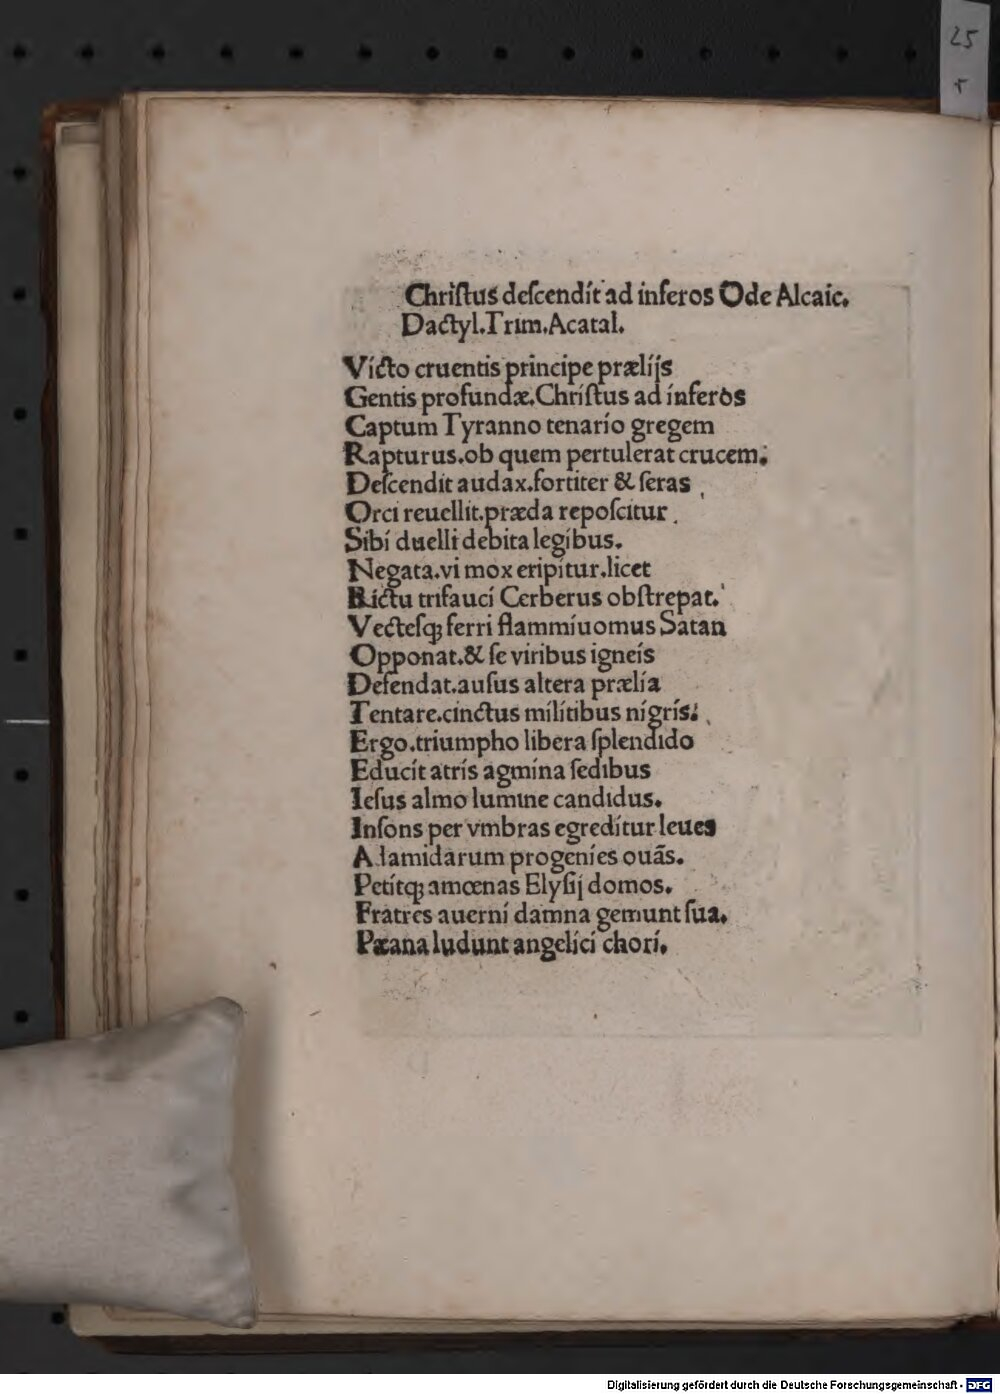 25
r
Chriſtus deſcendit ad inferos Ode Alcaic.
Dactyl.Trim.Acatal.
Victo cruentis principe prælijs
Gentis profundæ.Chriſtus ad inferos
Captum Tyranno tenario gregem
Rapturus.ob quem pertulerat crucem.
Deſcendit audax.fortiter & ſeras
Orci reuellit.præda repoſcitur.
Sibi duelli debita legibus.
Negata.vi mox eripitur.licet
Rictu trifauci Cerberus obſtrepat.
Vecteſqꝫ ferri flammiuomus Satan
Opponat.& ſe viribus igneis
Defendat.auſus altera prælia
Tentare.cinctus militibus nigris.
Ergo.triumpho libera ſplendido
Educit atris agmina ſedibus
Ieſus almo lumine candidus.
Inſons per vmbras egreditur leues
Adamidarum progenies ouãs.
Petitqꝫ amœnas Elyſij domos.
Fratres auerni damna gemunt ſua.
Pæana ludunt angelici chori.
Digitalisierung gefördert durch die Deutsche Forschungsgemeinschaft - DFG